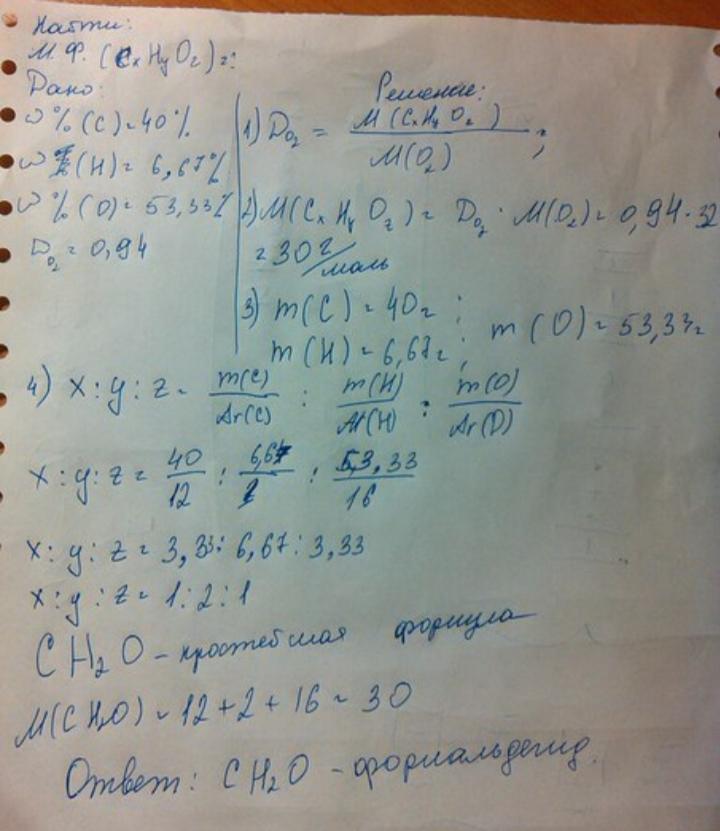 Найти:
М.Ф. (CxHyOz) =:
Дано:
ω%(C) = 40%
ω%(H) = 6,67%
ω%(O) = 53,33%
D_O2 = 0,94
Решение:
1) D_O2 = M(CxHyOz) / M(O2) ;
2) M(CxHyOz) = D_O2 · M(O2) = 0,94 · 32
= 30 г/моль
3) m(C) = 40г ;
m(H) = 6,67г ; m(O) = 53,33г
4) x : y : z = m(C)/Ar(C) : m(H)/Ar(H) : m(O)/Ar(O)
x : y : z = 40/12 : 6,67/1 : 53,33/16
x : y : z = 3,33 : 6,67 : 3,33
x : y : z = 1 : 2 : 1
CH2O – простейшая формула
M(CH2O) = 12 + 2 + 16 = 30
Ответ: CH2O – формальдегид.